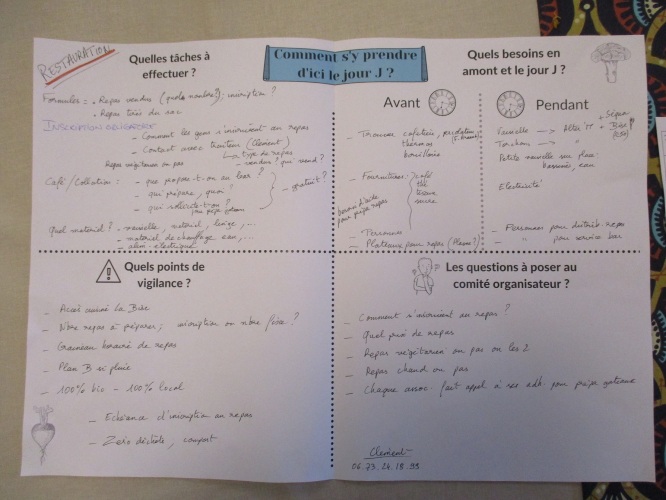 RESTAURATION
Quelles tâches à
effectuer ?
Comment s'y prendre
d'ici le jour J ?
Quels besoins en
amont et le jour J ?
Formules : . Repas vendus (quel nombre?); inscription ?
. Repas tirés du sac
- Comment les gens s'inscrivent au repas
- Contact avec traiteur (Clément)
↳ type de repas
Repas végétarien ou pas
- vendeurs ? qui vend ?
Café / Collation : - que propose-t-on au leur ?
- qui prépare, quoi ?
- qui sollicite-t-on ?
- gratuit ?
Quel matériel ? - vaisselle, matériel, linge, ...
- matériel de chauffage eau, ...
- alim. électrique
Avant
- Trouver cafetière,
thermos
bouilloire
- Fournitures : café
thé
tisane
sucre
besoin d'aide
pour prépa repas
- Personnes
- Plateaux pour repas
Pendant
Vaisselle → Alter'
Torchons → "
Petite vaisselle sur place
bassines, eau
Electricité
- Personnes pour distrib. repas
- " pour service bar
Quels points de
vigilance ?
- Accès cuisine La Bise
- Nbre repas à préparer; inscription ou nbre fixe ?
- Grandeur buvette de repas
- Plan B si pluie
- 100% bio - 100% local
- Echéance d'inscription au repas
- Zéro déchets, compost
Les questions à poser au
comité organisateur ?
- Comment s'inscrivent au repas ?
- Quel prix de repas
- Repas végétarien ou pas ou les 2
- Repas chaud ou pas
- Chaque assoc. fait appel à ses adh. pour prépa gateaux
Clément
06.73.24.18.95